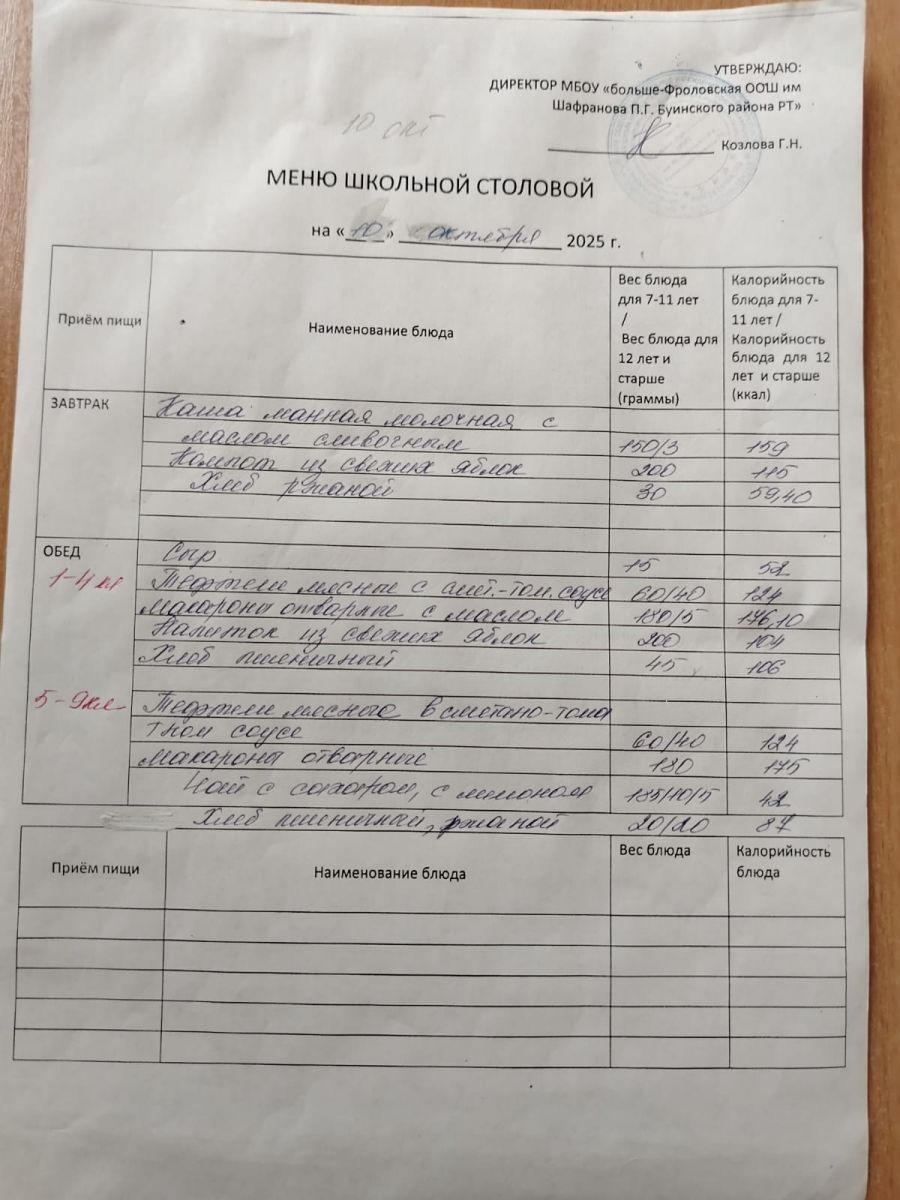 УТВЕРЖДАЮ:
ДИРЕКТОР МБОУ «больше-Фроловская ООШ им
Шафранова П.Г. Буинского района РТ»
Козлова Г.Н.
10 окт
МЕНЮ ШКОЛЬНОЙ СТОЛОВОЙ
на «10» октября 2025 г.
Приём пищи
Наименование блюда
Вес блюда
для 7-11 лет
/
Вес блюда для
12 лет и
старше
(граммы)
Калорийность
блюда для 7-
11 лет /
Калорийность
блюда для 12
лет и старше
(ккал)
ЗАВТРАК
Каша манная молочная с
маслом сливочным 150/3 159
Компот из свежих яблок 200 115
Хлеб ржаной 30 59,40
ОБЕД
Сыр 15 52
1-4 кл
Тефтели мясные с смет.-том. соусе 60/40 124
Макароны отварные с маслом 180/5 176,10
Напиток из свежих яблок 200 104
Хлеб пшеничный 45 106
5-9 кл
Тефтели мясного в сметано-тома
тном соусе 60/40 124
Макароны отварные 180 175
Чай с сахаром, с лимоном 185/10/5 42
Хлеб пшеничный, ржаной 20/20 87
Приём пищи
Наименование блюда
Вес блюда
Калорийность
блюда